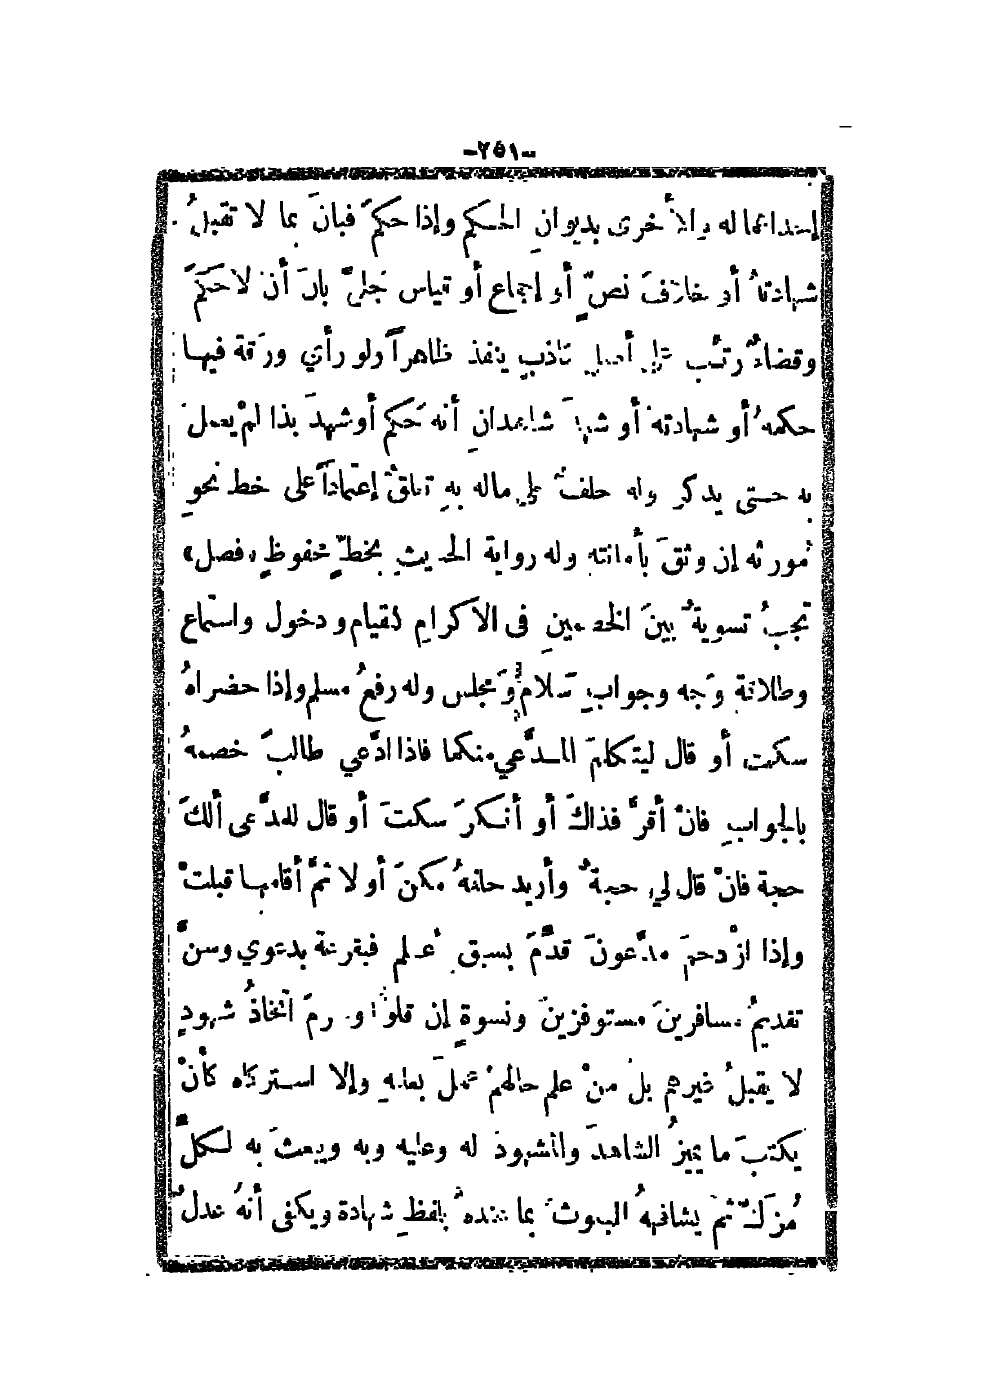 -٢٥١-
إحداهما له والأخرى بديوانِ الحكم وإذا حكمَ فبانَ بما لا تقبلُ
شهادتهُ أو خلافَ نصٍّ أو إجماع أو قياس جليٍّ بانَ أن لا حكمَ
وقضاءٌ رتّب على أصل كاذبٍ ينفذ ظاهراً ولو رأي ورَقة فيها
حكمهُ أو شهادته أو شهدَ شاهدانِ أنه حَكم أو شهدَ بذا لمْ يعملْ
به حتى يذكر وله حلفٌ على ماله بهِ تعلقٌ إعتماداً على خط نحوِ
مورثه إن وثقَ بأمانته وله رواية الحديثِ بخطٍّ محفوظٍ «فصل»
تجبُ تسويةٌ بينَ الخصمينِ فى الاكرامِ كقيام ودخول واستماع
وطلاقة وَجه وجوابِ سَلام وَمجلس وله رفعُ مسلم وإذا حضراهُ
سكت أو قال ليتكلمَ المدَّعي منكما فاذا ادَّعي طالبَ خصمهُ
بالجوابِ فانْ أقرَّ فذاكَ أو أنكرَ سكتَ أو قال للمدَّعى ألكَ
حجة فانْ قال لي حجةٌ وأريد حلفهُ مكنَ أو لا ثمَّ أقامها قبلتْ
وإذا ازْدحمَ مدَّعونَ قدَّمَ بسبق عُلم فبقرعة بدعوي وسنَّ
تقديمُ مسافرينَ مستوفزينَ ونسوةٍ إن قلوا وحرمَ اتخاذُ شهودٍ
لا يقبلُ غيرهم بل منْ علم حالهمْ عملَ بعلمه وإلا استزكاه كأنْ
يكتبَ ما يميزُ الشاهدَ والمشهودَ له وعليه وبه ويبعثَ به لكلِّ
مُزكّ ثمَّ يشافههُ المبعوثُ بما عندهُ بلفظِ شهادة ويكفى أنهُ عدلٌ